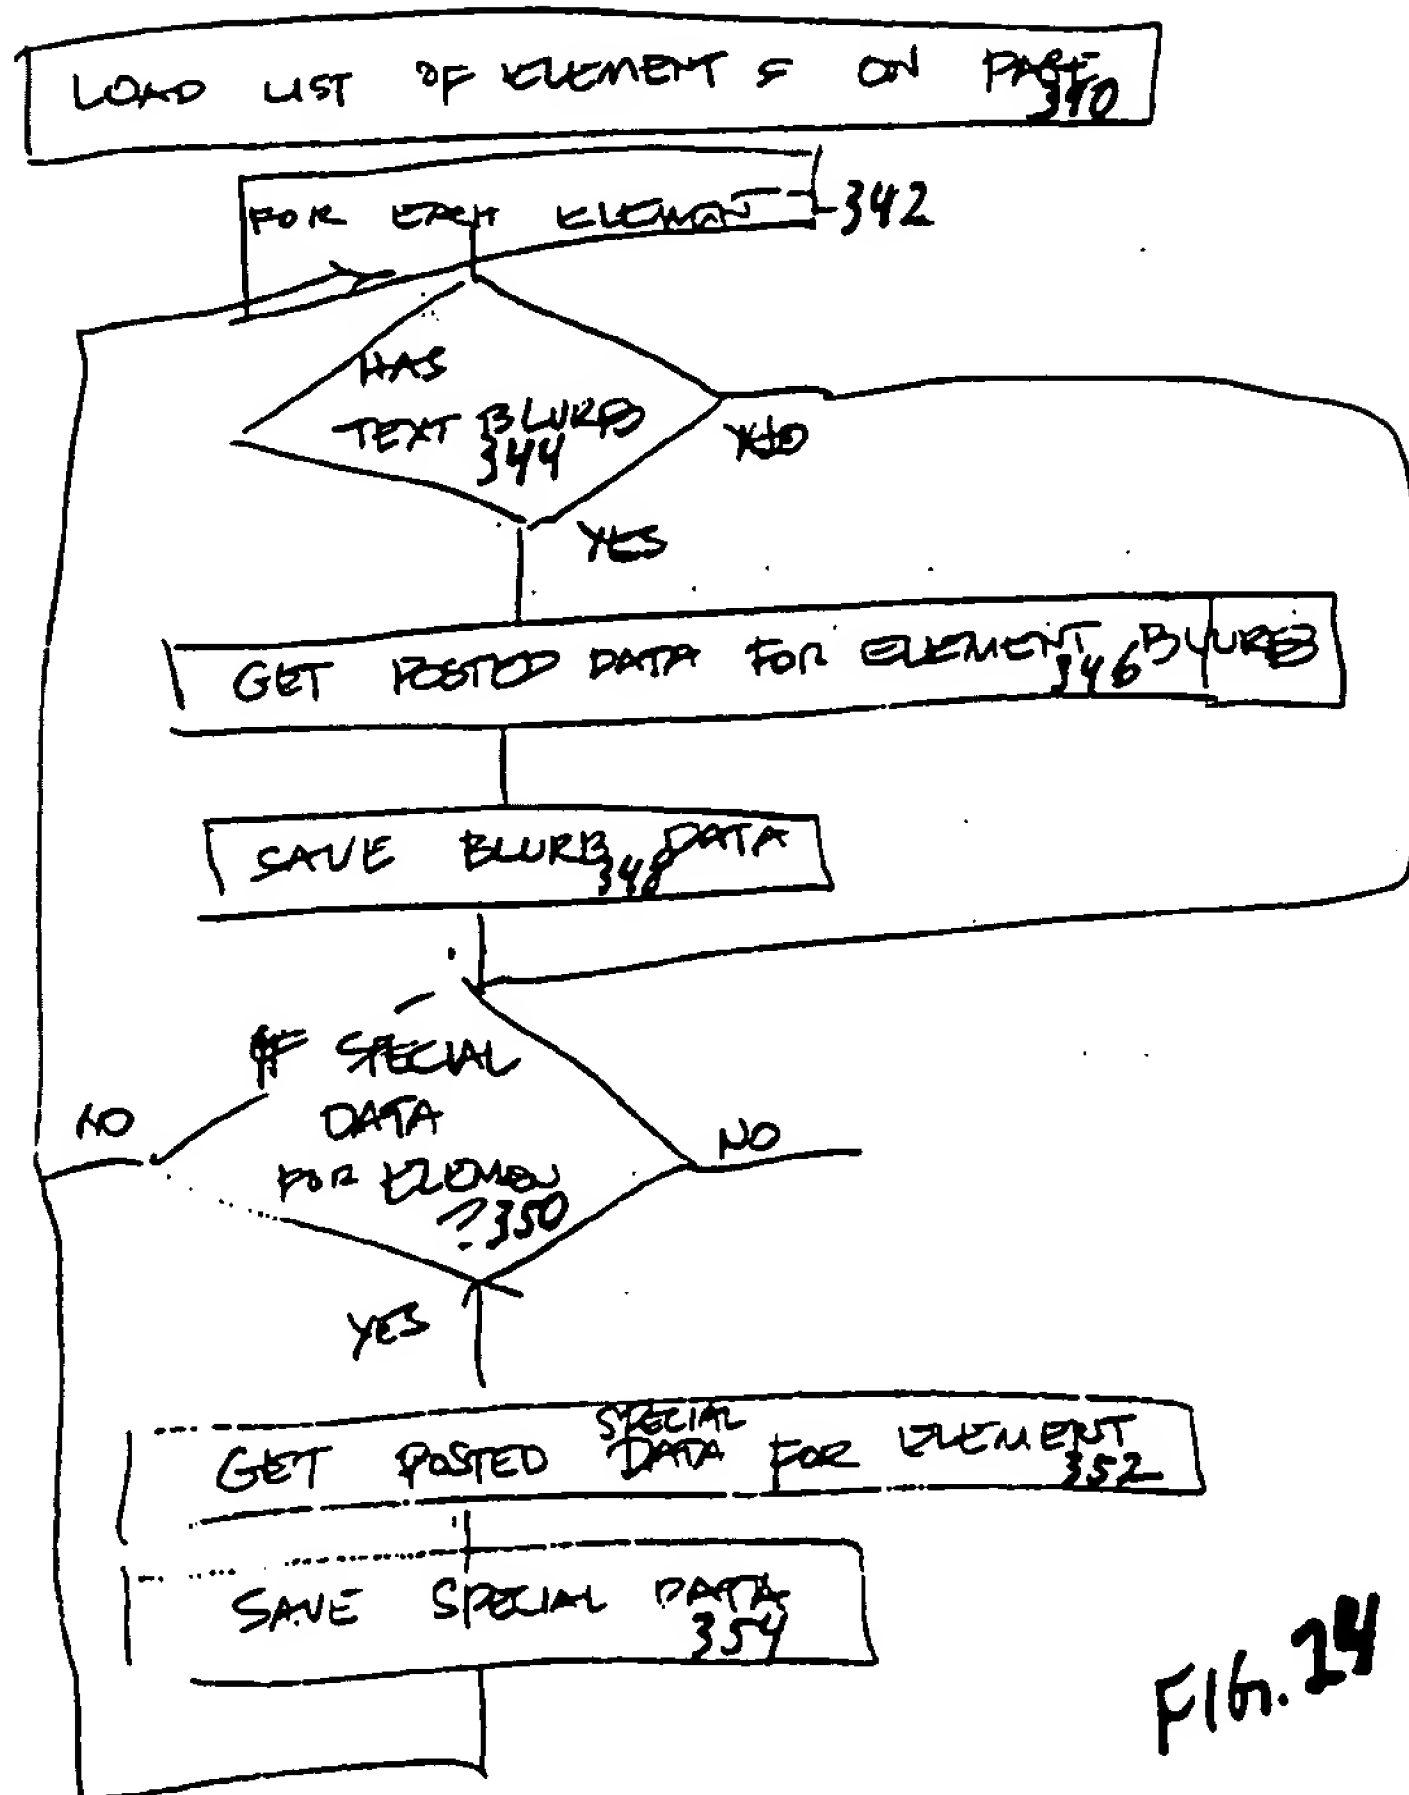 LOAD LIST OF ELEMENTS ON PAGE
340
FOR EACH ELEMEN 342
HAS
TEXT BLURB
344
NO
YES
GET POSTED DATA FOR ELEMENT BLURB
346
SAVE BLURB DATA
348
IF SPECIAL
DATA
FOR ELEMEN
? 350
NO
NO
YES
SPECIAL
GET POSTED DATA FOR ELEMENT
352
SAVE SPECIAL DATA
354
FIG. 24